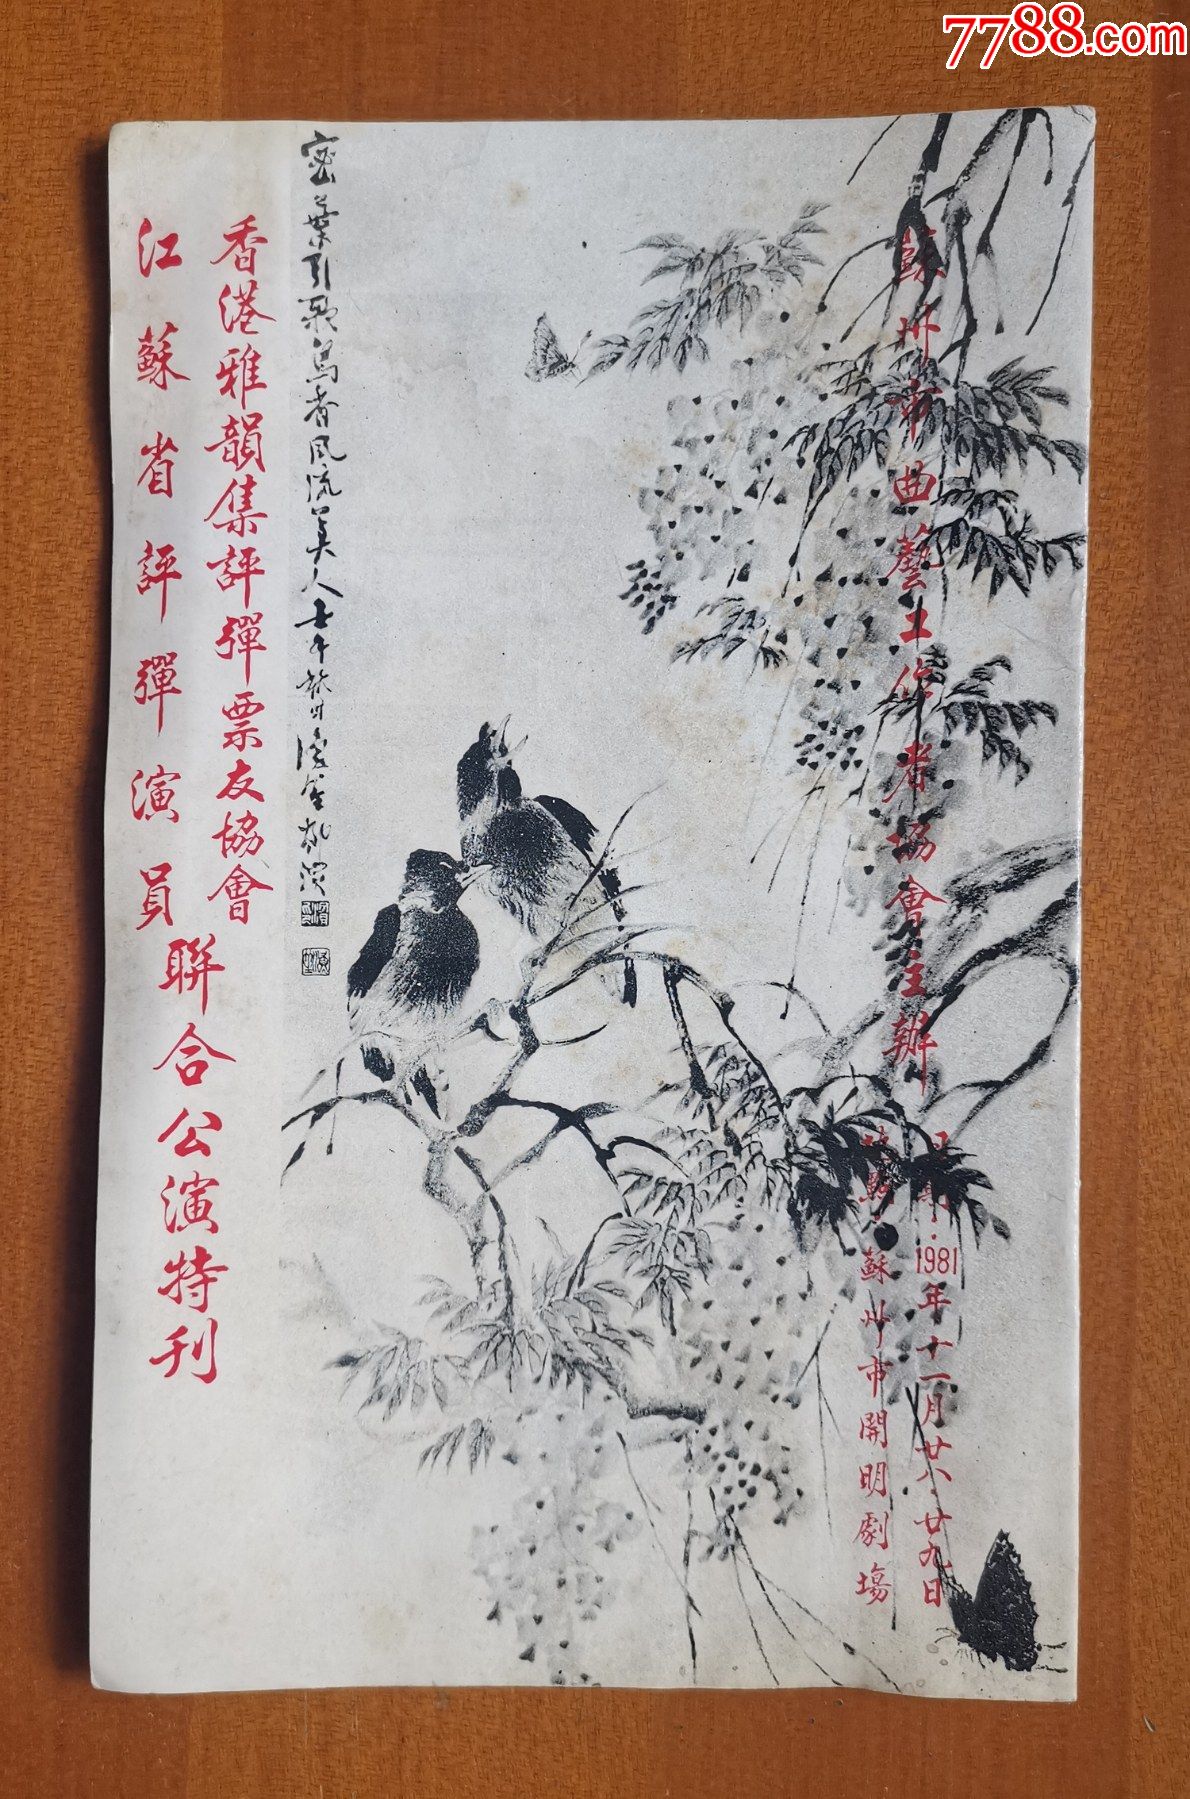 7788.com
蘇州市曲藝工作者協會主辦
日期：1981年十一月廿八·廿九日
地點：蘇州市開明劇場
密葉引歌鳥香風流美人
香港雅韻集評彈票友協會
江蘇省評彈演員
聯合公演特刊